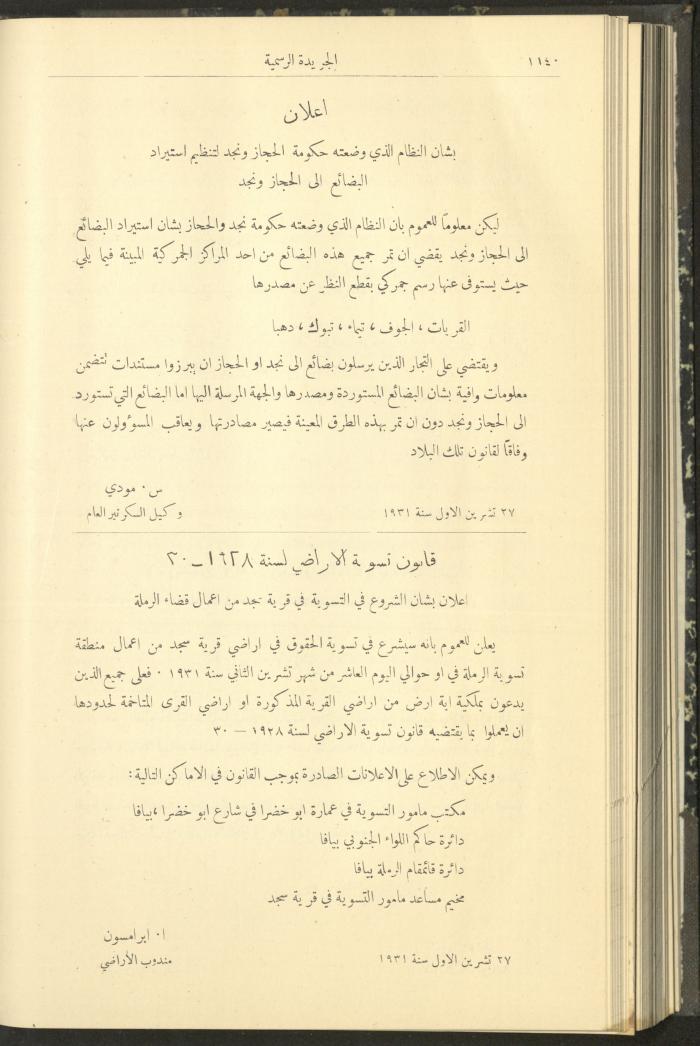 ١١٤٠ الجريدة الرسمية
اعلان
بشان النظام الذي وضعته حكومة الحجاز ونجد لتنظيم استيراد
البضائع الى الحجاز ونجد
ليكن معلوماً للعموم بان النظام الذي وضعته حكومة نجد والحجاز بشان استيراد البضائع
الى الحجاز ونجد يقضي ان تمر جميع هذه البضائع من احد المراكز الجمركية المبينة فيما يلي
حيث يستوفى عنها رسم جمركي بقطع النظر عن مصدرها
القريات ، الجوف ، تيماء ، تبوك ، دهبا
ويقتضي على التجار الذين يرسلون بضائع الى نجد او الحجاز ان يبرزوا مستندات تتضمن
معلومات وافية بشان البضائع المستوردة ومصدرها والجهة المرسلة اليها اما البضائع التي تستورد
الى الحجاز ونجد دون ان تمر بهذه الطرق المعينة فيصير مصادرتها ويعاقب المسؤولون عنها
وفاقاً لقانون تلك البلاد
س٠ مودي
٢٧ تشرين الاول سنة ١٩٣١ وكيل السكرتير العام
قانون تسوية الاراضي لسنة ١٩٢٨ــ٣٠
اعلان بشان الشروع في التسوية في قرية سجد من اعمال قضاء الرملة
يعلن للعموم بانه سيشرع في تسوية الحقوق في اراضي قرية سجد من اعمال منطقة
تسوية الرملة في او حوالي اليوم العاشر من شهر تشرين الثاني سنة ١٩٣١ ٠ فعلى جميع الذين
يدعون بملكية اية ارض من اراضي القرية المذكورة او اراضي القرى المتاخمة لحدودها
ان يعملوا بما يقتضيه قانون تسوية الاراضي لسنة ١٩٢٨ – ٣٠
ويمكن الاطلاع على الاعلانات الصادرة بموجب القانون في الاماكن التالية:
مكتب مامور التسوية في عمارة ابو خضرا في شارع ابو خضرا ،بيافا
دائرة حاكم اللواء الجنوبي بيافا
دائرة قائمقام الرملة بيافا
مخيم مساعد مامور التسوية في قرية سجد
ا٠ ابرامسون
٢٧ تشرين الاول سنة ١٩٣١ مندوب الأراضي